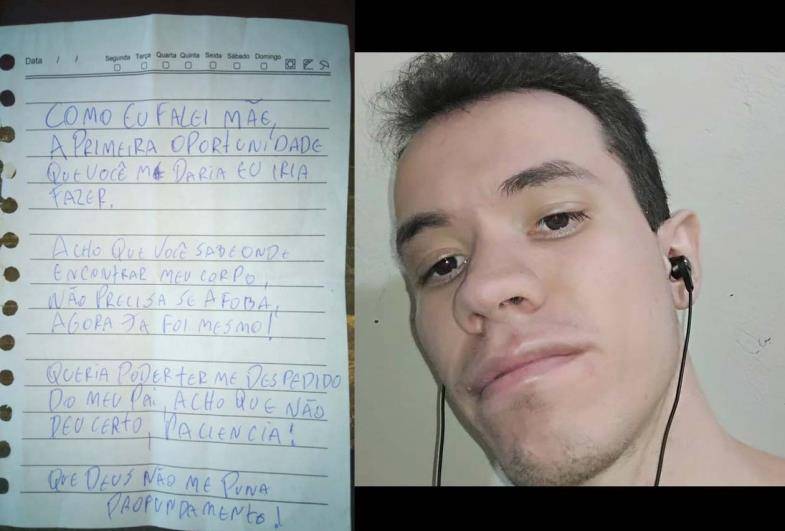 Data / /
Segunda Terça Quarta Quinta Sexta Sábado Domingo
COMO EU FALEI MÃE,
A PRIMEIRA OPORTUNIDADE
QUE VOCÊ ME DARIA EU IRIA
FAZER.
ACHO QUE VOCÊ SABE ONDE
ENCONTRAR MEU CORPO,
NÃO PRECISA SE AFOBA,
AGORA JA FOI MESMO!
QUERIA PODER TER ME DESPEDIDO
DO MEU PAI, ACHO QUE NÃO
DEU CERTO, PACIENCIA!
QUE DEUS NÃO ME PUNA
PROFUNDAMENTO!